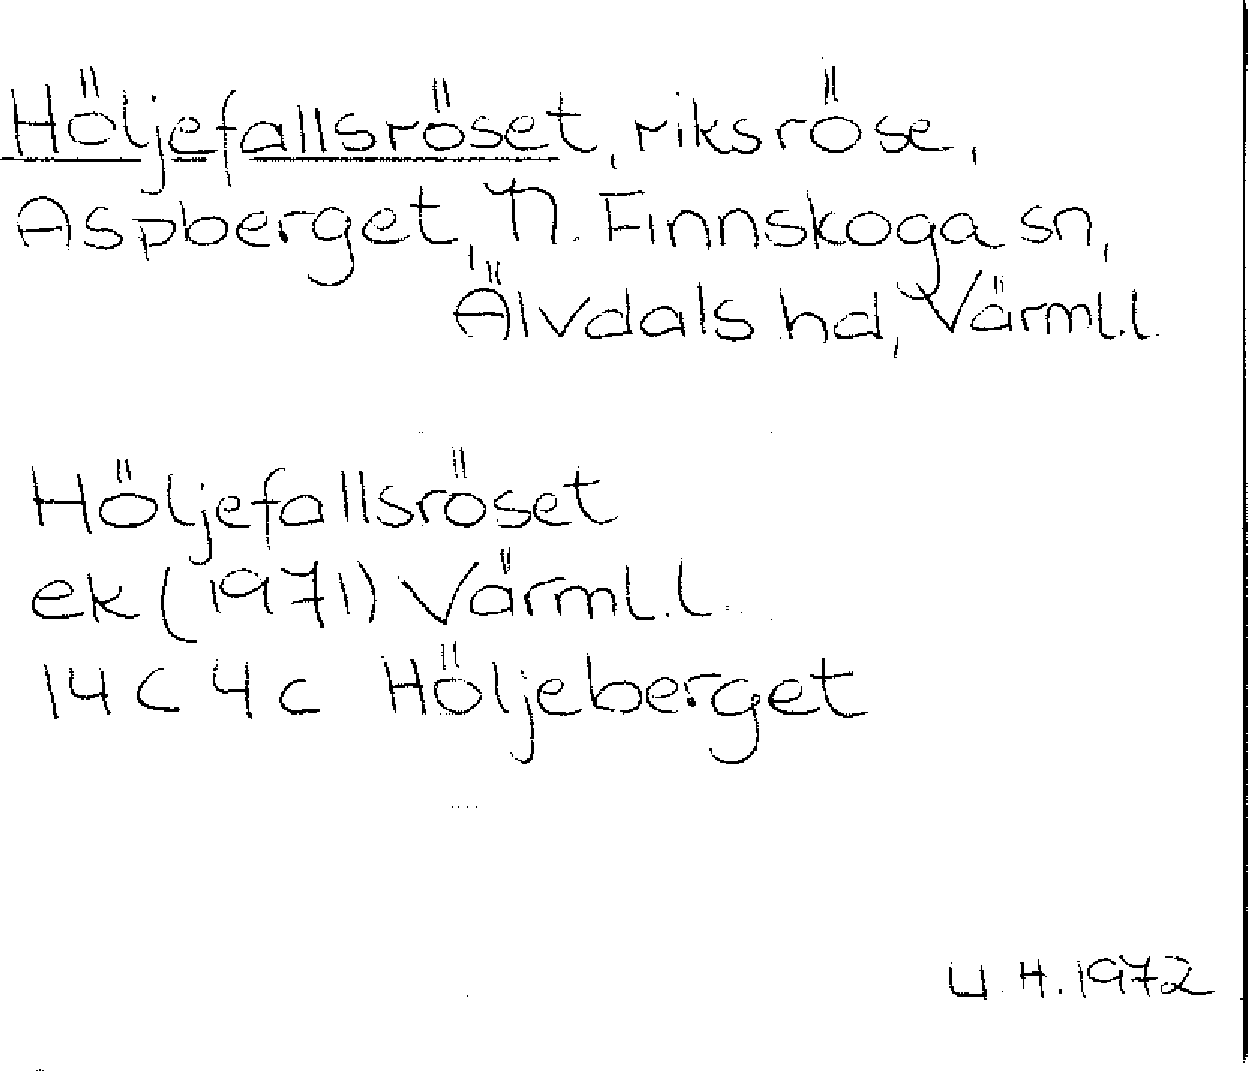 Höljefallsröset, riksröse,
Aspberget, N. Finnskoga sn,
Älvdals hd, Värml.l.
Höljefallsröset
ek (1971) Värml.l.
14 C 4 c Höljeberget
U.H. 1972